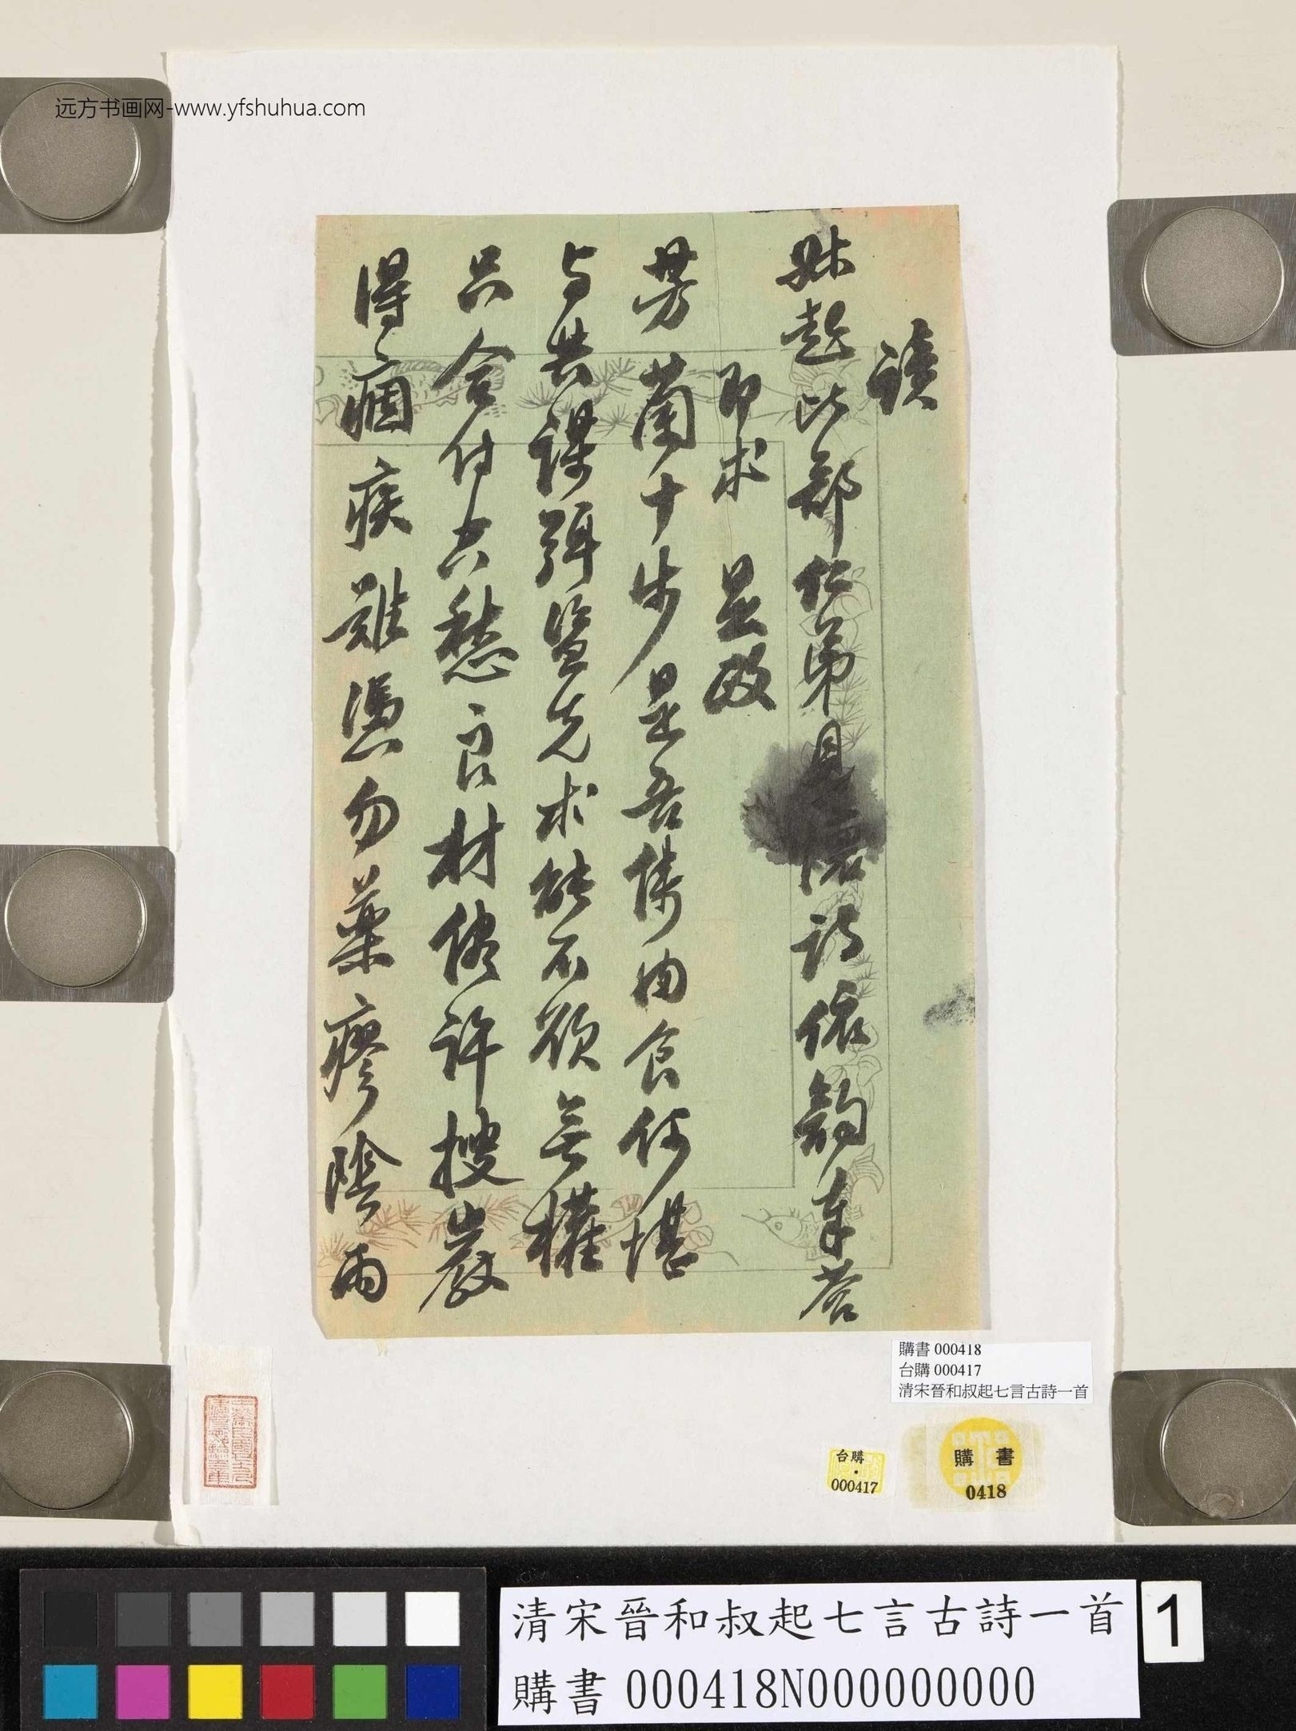 远方书画网-www.yfshuhua.com
讀
叔起比部仁弟見懷詩依韻奉答
即求 是政
芳蘭十步是吾儔肉食何堪
与共謀弭盜先求能不欲無權
只合付愁良材許搜巖
得痼疾難憑勿藥瘳陰雨
購書 000418
台購 000417
清宋晉和叔起七言古詩一首
台購
000417
購書
0418
清宋晉和叔起七言古詩一首
購書 000418N000000000
1